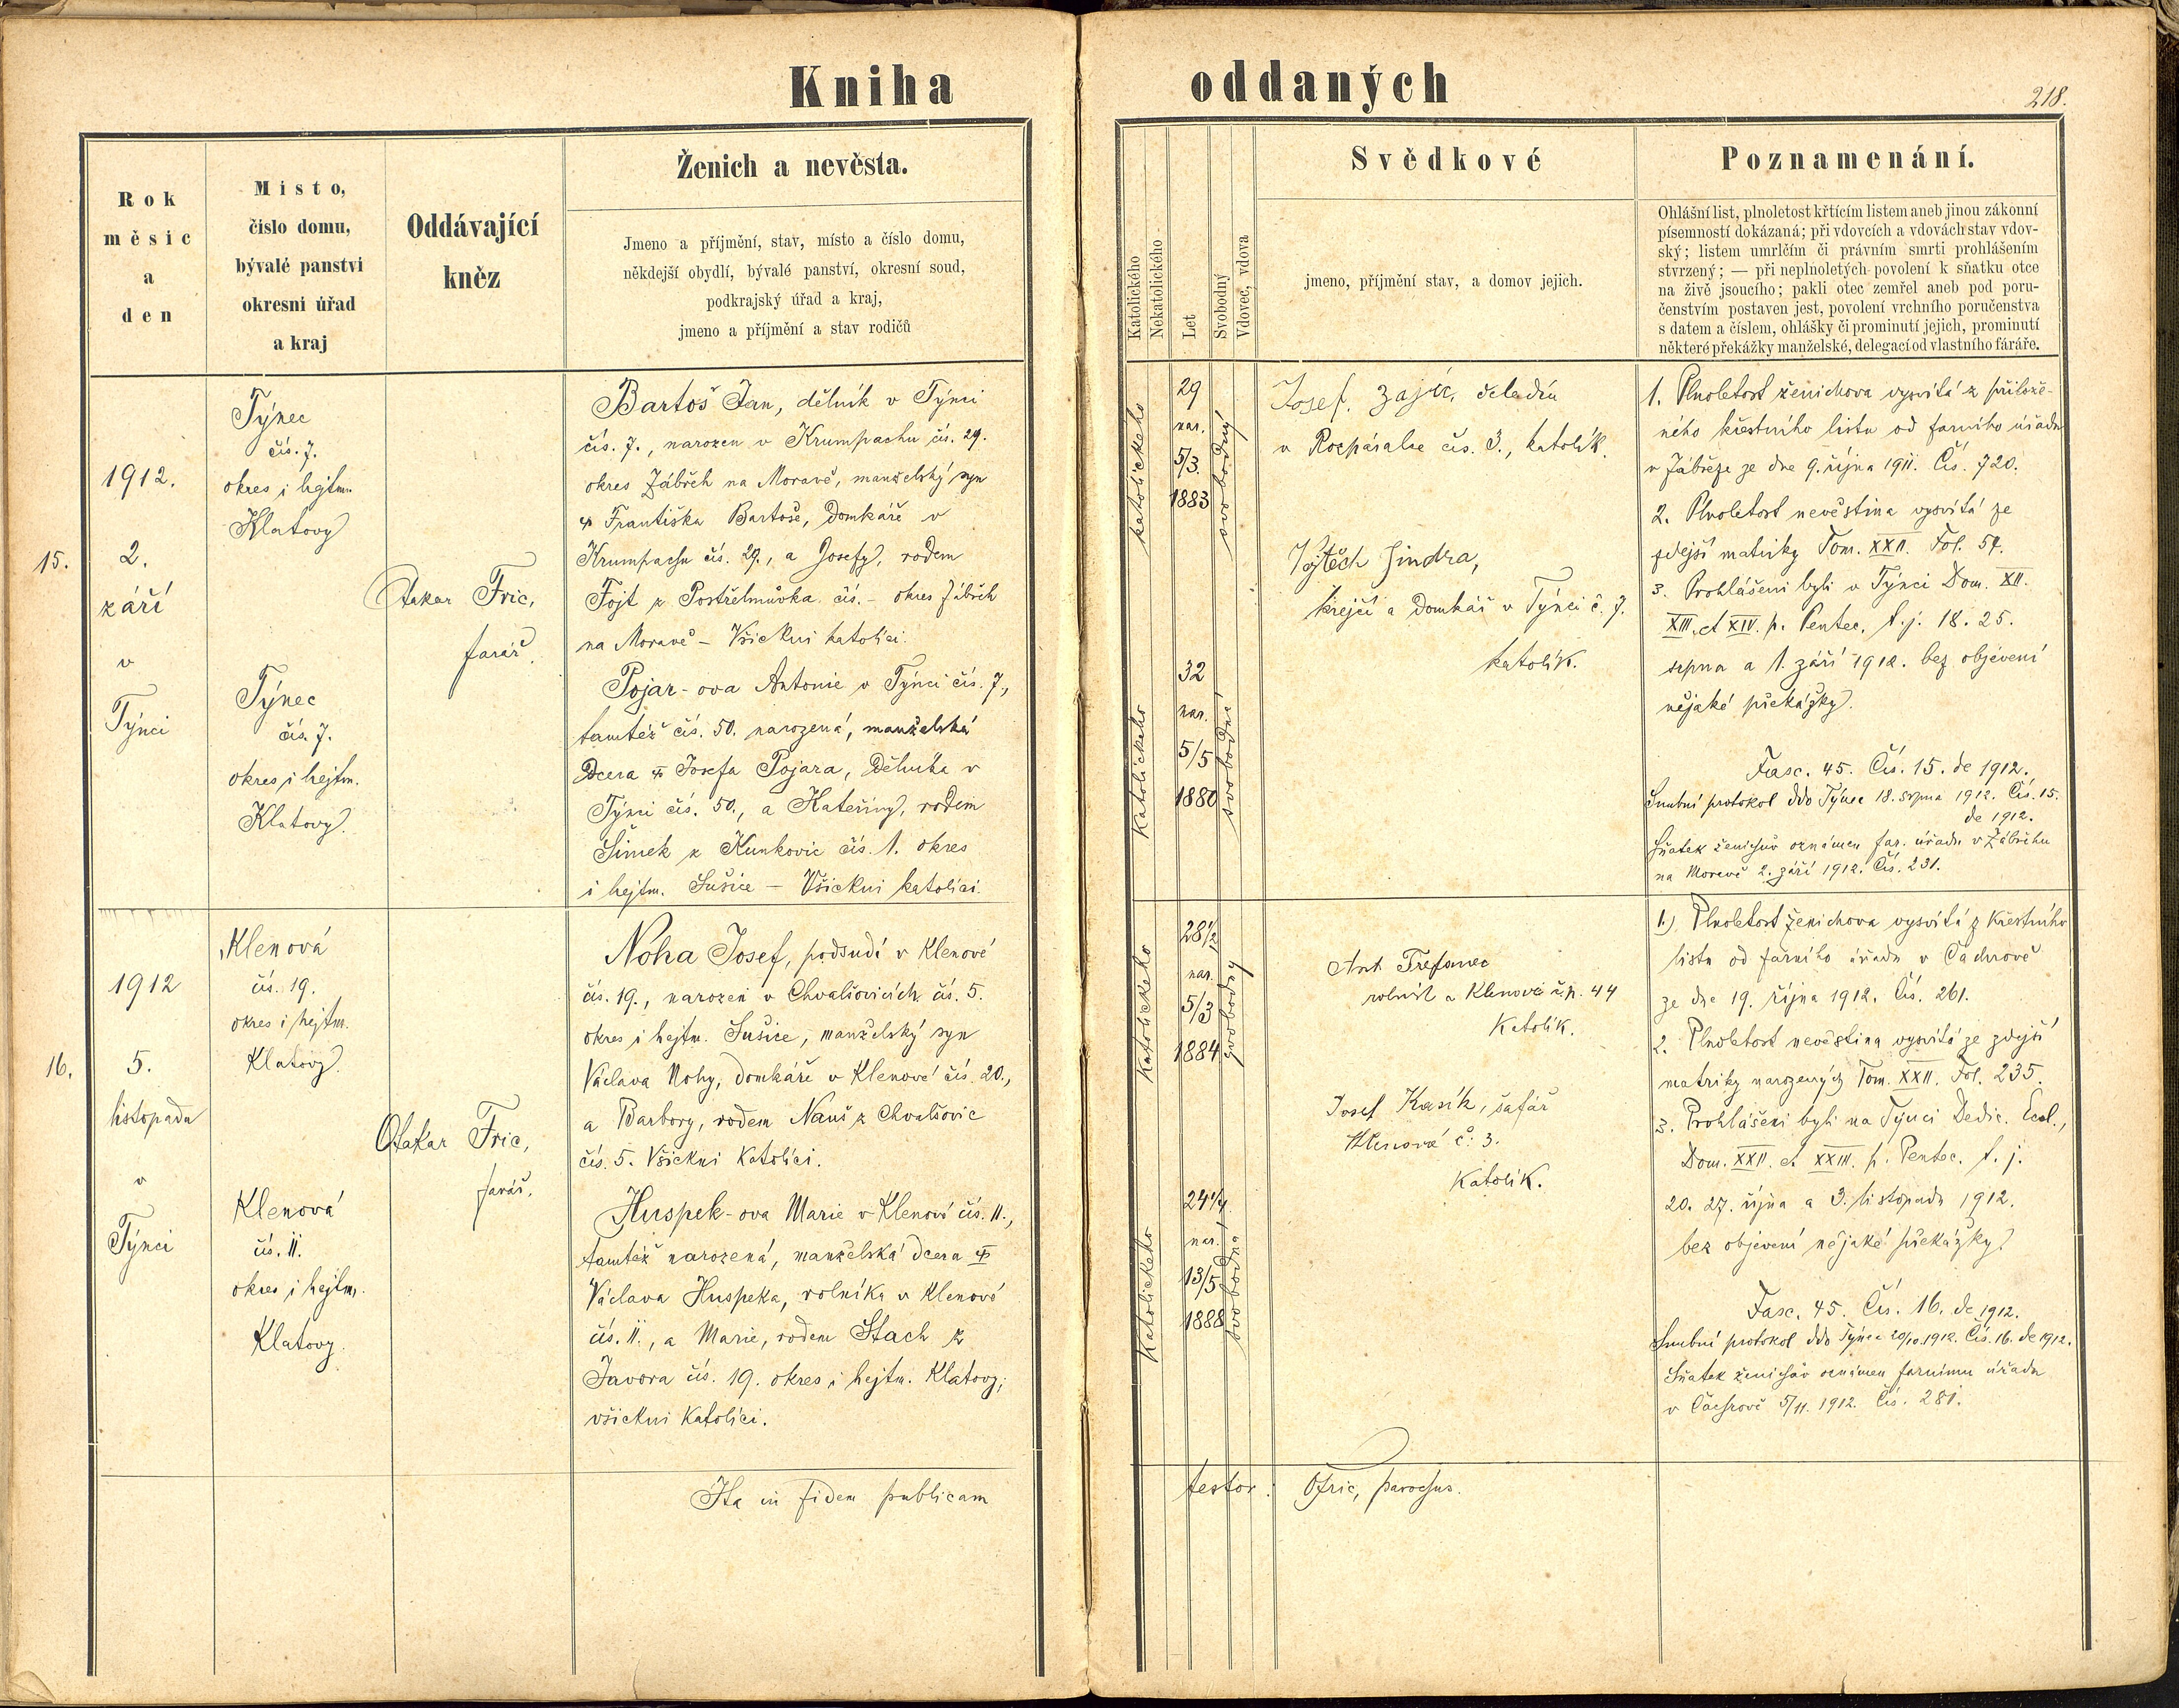 Kniha oddaných
218.
Rok
měsíc
a
den
Místo,
číslo domu,
bývalé panství
okresní úřad
a kraj
Oddávající
kněz
Ženich a nevěsta.
Jmeno a příjmění, stav, místo a číslo domu,
někdejší obydlí, bývalé panství, okresní soud,
podkrajský úřad a kraj,
jmeno a příjmění a stav rodičů
Katolického
Nekatolického
Let
Svobodný
Vdovec, vdova
Svědkové
jmeno, příjmění stav, a domov jejich.
Poznamenání.
Ohlášní list, plnoletost křtícím listem aneb jinou zákonní
písemností dokázaná; při vdovcích a vdovách stav vdov-
ský; listem umrlčím či právním smrti prohlášením
stvrzený; — při neplnoletých povolení k sňatku otce
na živě jsoucího; pakli otec zemřel aneb pod poru-
čenstvím postaven jest, povolení vrchního poručenstva
s datem a číslem, ohlášky či prominutí jejich, prominutí
některé překážky manželské, delegací od vlastního fáráře.
15.
1912.
2.
září
v
Týnci
Týnec
čís. 7.
okres i hejtm.
Klatovy
Týnec
čís. 7.
okres i hejtm.
Klatovy.
Otakar Fric,
farář.
Bartoš Jan, dělník v Týnci
čís. 7., narozen v Krumpachu čís. 29.
okres Zábřeh na Moravě, manželský syn
Františka Bartoše, domkáře v
Krumpachu čís. 29., a Josefy, rodem
Fojt z Postřelmůvka čís. – okres Zábřeh
na Moravě – Všickni katolíci.
Pojar-ova Antonie v Týnci čís. 7.,
tamtéž čís. 50. narozená, manželská
dcera Josefa Pojara, dělníka v
Týnci čís. 50., a Kateřiny, rodem
Šimek z Kunkovic čís. 1. okres
i hejtm. Sušice – Všickni katolíci.
katolického
29
nar.
5/3.
1883
svobodný
katolického
32
nar.
5/5
1880
svobodná
Josef Zajíc, čeledín
v Rozpáralce čís. 3., katolík.
Vojtěch Jindra,
krejčí a domkář v Týnci č. 7.
katolík.
1. Plnoletost ženichova vysvítá z přilože-
ného křestního listu od farního úřadu
v Zábřeze ze dne 9. října 1911. Čís. 720.
2. Plnoletost nevěstina vysvítá ze
zdejší matriky Tom. XXII. Fol. 57.
3. Prohlášeni byli v Týnci Dom. XII.
XIII. et XIV. p. Pentec. t. j. 18. 25.
srpna a 1. září 1912. bez objevení
nějaké překážky.
Fasc. 45. Čís. 15. de 1912.
Snubní protokol ddo Týnec 18. srpna 1912. Čís. 15.
de 1912.
Sňatek ženichův oznámen far. úřadu v Zábřehu
na Moravě 2. září 1912. Čís. 231.
16.
1912
5.
listopadu
v
Týnci
Klenová
čís. 19.
okres i hejtm.
Klatovy.
Klenová
čís. 11.
okres i hejtm.
Klatovy.
Otakar Fric,
farář.
Noha Josef, podsudí v Klenové
čís. 19., narozen v Chvalšovicích čís. 5.
okres i hejtm. Sušice, manželský syn
Václava Nohy, domkáře v Klenové čís. 20.,
a Barbory, rodem Nauš z Chvalšovic
čís. 5. Všickni Katolíci.
Huspek-ova Marie v Klenové čís. 11.,
tamtéž narozená, manželská dcera
Václava Huspeka, rolníka v Klenové
čís. 11., a Marie, rodem Stach z
Javora čís. 19. okres i hejtm. Klatovy;
všickni Katolíci.
Katolického
28 1/2
nar.
5/3
1884
svobodný
Katolického
24 1/2
nar.
13/5
1888
svobodná
rolník a Klenové č.p. 44
Katolík.
Josef Kasík, šafář
Klenová č. 3.
Katolík.
1.) Plnoletost ženichova vysvítá z Křestního
listu od farního úřadu v Čachrově
ze dne 19. října 1912. Čís. 261.
2. Plnoletost nevěstina vysvítá ze zdejší
matriky narozených Tom. XXII. Fol. 235.
3. Prohlášeni byli na Týnci Dedic. Eccl.,
Dom. XXII. et XXIII. p. Pentec. t. j.
20. 27. října a 3. listopadu 1912.
bez objevení nějaké překážky.
Fasc. 45. Čís. 16. de 1912.
Snubní protokol ddo Týnec 20/10. 1912. Čís. 16. de 1912.
Sňatek ženichův oznámen farnímu úřadu
v Čachrově 5/11. 1912. Čís. 281.
Ita in fidem publicam testor: OFric, parochus.